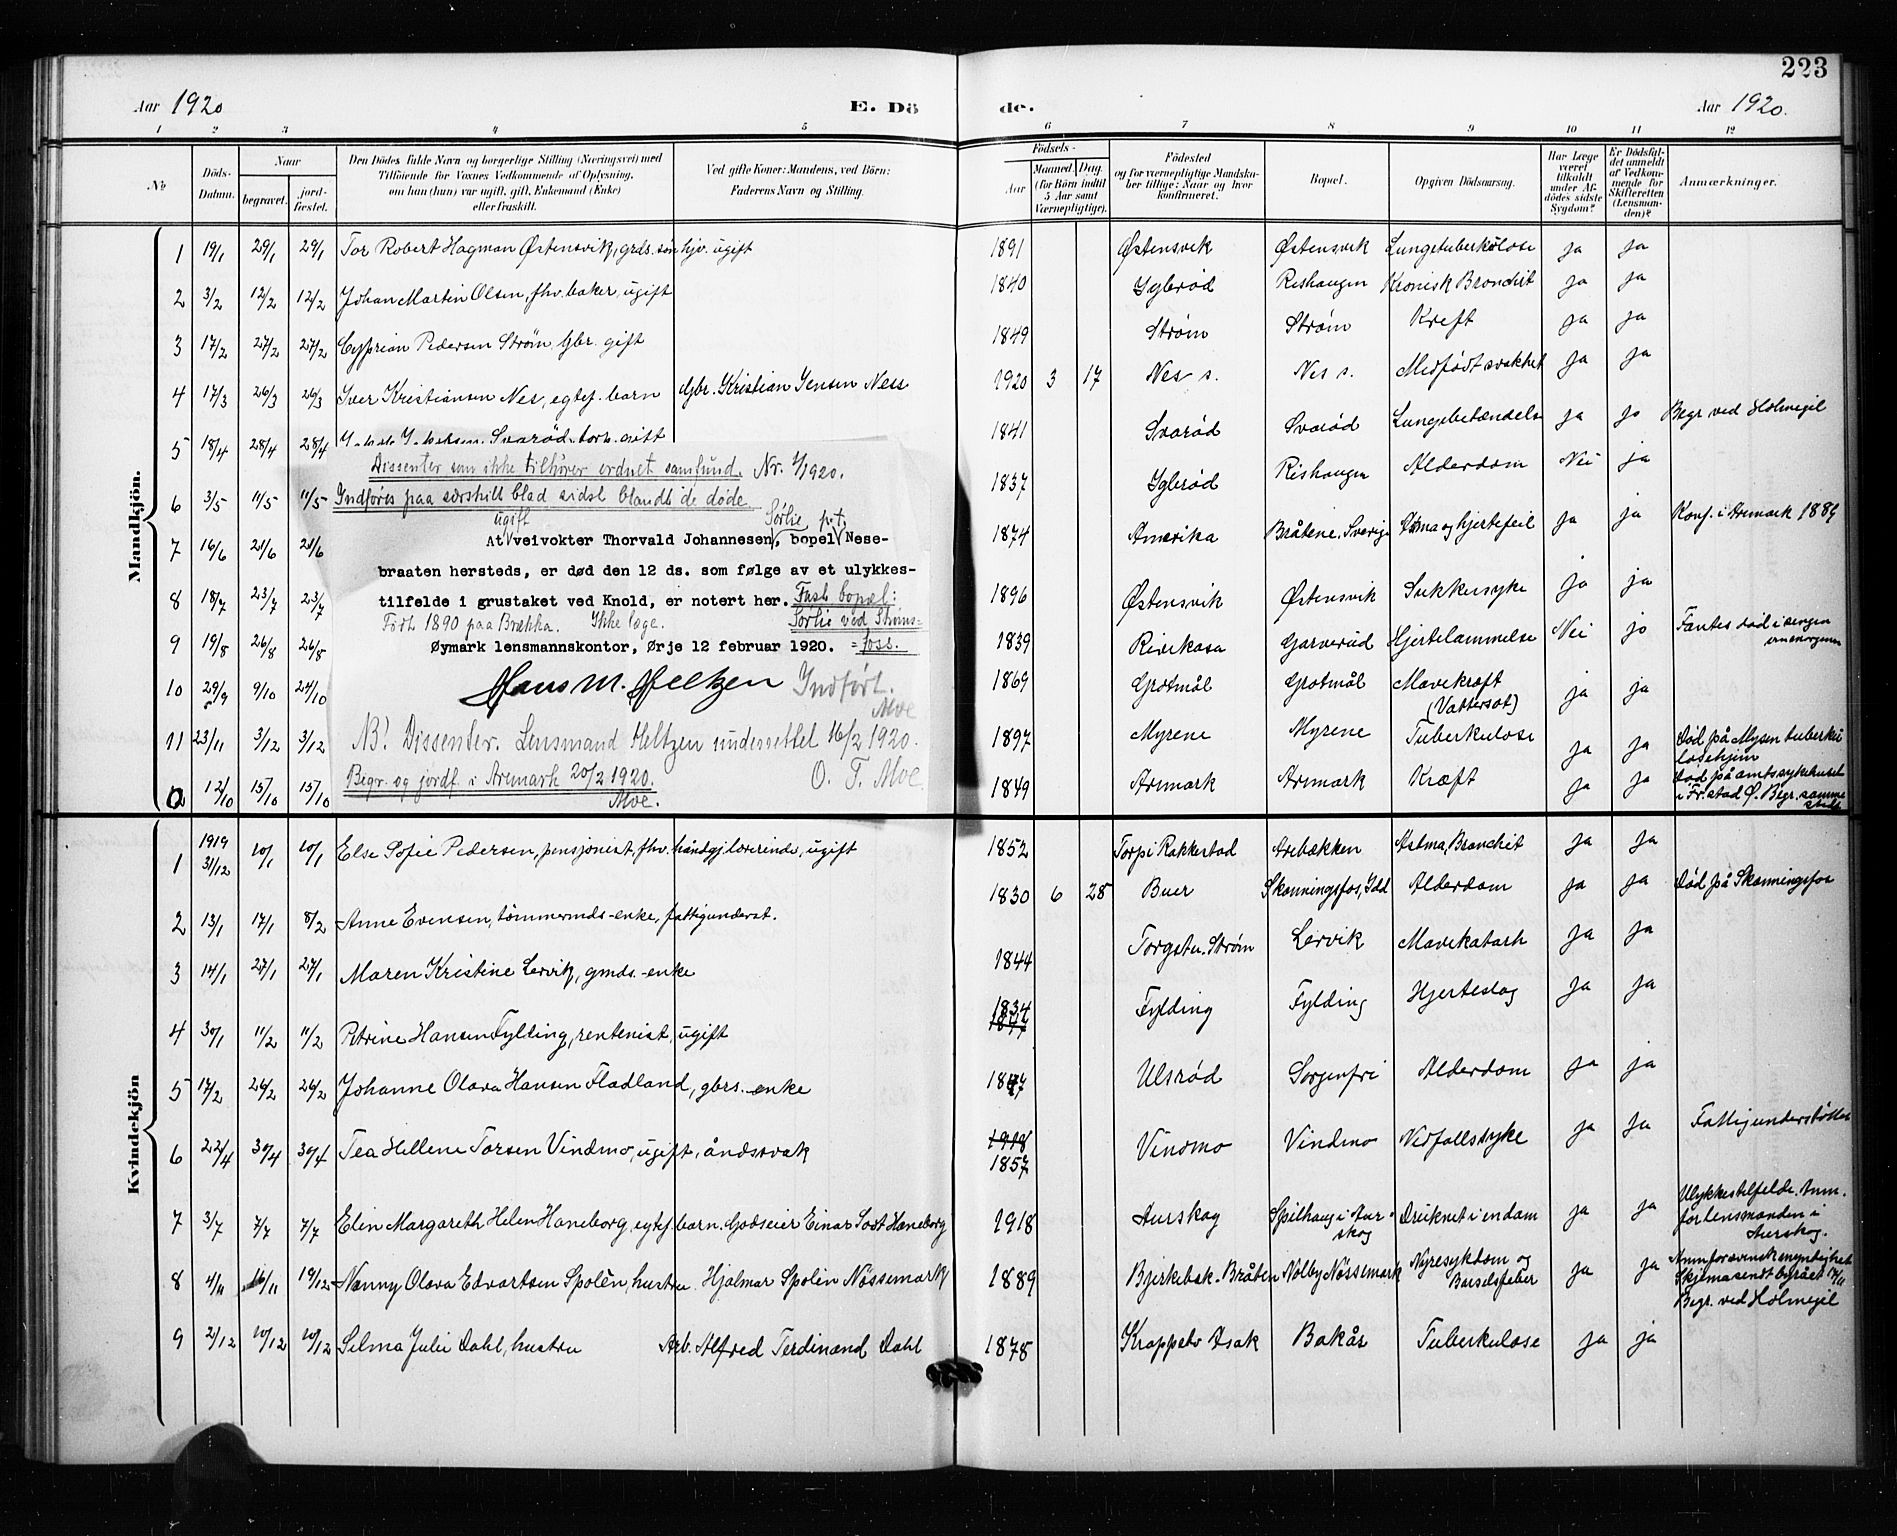 223
Aar 1920 E. Dö de. Aar 1920.
1 2 3 4 5 6 7 8 9 10 11 12
№
Döds-Datum.
Naar
begravet.
jord-fæstet.
Den Dödes fulde Navn og borgerlige Stilling (Næringsvei) med
Tilföiende for Voxnes Vedkommende af Oplysning,
om han (hun) var ugift, gift, Enkemand (Enke)
eller fraskilt.
Ved gifte Koner: Mandens, ved Börn:
Faderens Navn og Stilling.
Födsels-
Aar
Maaned. Dag.
(for Börn indtil
5 Aar samt
Værnepligtige).
Födested
og for værnepligtige Mandska-
ber tillige: Naar og hvor
konfirmeret.
Bopæl.
Opgiven Dödsaarsag.
Har Læge
været
tilkaldt
under Af-
dödes sidste
Sygdom?
Er Dödsfal-
det anmeldt
af Vedkom-
mende for
Skifteretten
(Lensman-
den)?
Anmærkninger.
Mandkjön.
1 19/1 29/1 29/1 Tor Robert Hagman Østensvik, grds. søn hjv. ugift 1891 Østensvik Østensvik Lungetuberkulose ja ja
2 3/2 12/2 12/2 Johan Martin Olsen, fhv. baker, ugift 1840 Ygbrød Rishaugen Kronisk Bronchit ja ja
3 17/2 27/2 27/2 Cyprian Pedersen Strøm, Gbr. gift 1849 Strøm Strøm Kreft ja ja
4 17/3 26/3 26/3 Iver Kristiansen Nes, egtef. barn Gbr. Kristian Jensen Ness 1920 3 17 Nes s. Nes s. Medfødt svakhet ja ja
5 18/4 28/4 28/4 Svarød gift 1841 Svarød Svarød Lungebetændelse ja ja Begr. ved Holmegil
6 3/5 11/5 11/5 1837 Ygbrød Rishaugen Alderdom Nei ja
7 16/6 21/6 21/6 1874 Amerika Bråtene, Sverige Astma og hjertefeil ja ja Konf. i Aremark 1889
8 18/7 23/7 23/7 1896 Østensvik Østensvik Sukkersyke ja ja
9 19/8 26/8 26/8 1839 Rivikasa Garverud Hjertelammelse Nei ja Fantes død i sengen
om morgenen
10 29/9 9/10 24/10 1869 Grotmål Grotmål Mavekræft
(Vattersot) ja ja
11 23/11 3/12 3/12 1897 Myrene Myrene Tuberkulose ja ja Død på Mysen tuberku
losehjem
12/10 15/10 15/10 1849 Aremark Aremark Kræft ja ja Død på amtssykehuset
i Fr.stad Ø. Begr. samme
steds
Dissenter som ikke tilhører ordnet samfund. Nr. 1/1920.
Indføres paa særskilt blad sidst blandt de døde
ugift Sørlie p.t.
At veivokter Thorvald Johannesen, bopel Nese-
braaten hersteds, er død den 12 ds. som følge av et ulykkes-
tilfelde i grustaket ved Knold, er notert her. Fast bopæl:
Født 1890 paa Brækka. Ikke læge. Sørlie ved Strøms-
Øymark lensmannskontor, Ørje 12 februar 1920. =foss.
Hans M. Meltzen Indført.
Moe
NB! Dissenter. Lensmand Meltzen underrettet 16/2 1920.
Begr. og jordf. i Aremark 20/2 1920. O. T. Moe
Moe.
Kvindekjön
1 1919 31/12 10/1 10/1 Else Sofie Pedersen, pensjonist, fhv. håndgj.lærerinde, ugift 1852 Torp i Rakkestad Arebækken Astma, Bronchit ja ja
2 13/1 17/1 8/2 Anne Evensen, tømmermds-enke, fattigunderst. 1830 6 28 Buer Skonningsfos, Idd Alderdom ja ja Død på Skonningsfos
3 14/1 27/1 27/1 Maren Kristine Lervik, gmds.-enke 1844 Torgstu. Strøm Lervik Mavekatarh ja ja
4 30/1 11/2 11/2 Petrine Hansen Fylding, rentenist, ugift 1834 Fylding Fylding Hjerteslag ja ja
5 17/2 26/2 26/2 Johanne Olava Hansen Fladland, gbrs.-enke 1847 Ulsrød Sorgenfri Alderdom ja ja
6 22/4 30/4 30/4 Tea Hellene Torsen Vindmo, ugift, åndssvak 1918 1857 Vindmo Vindmo Nedfallssyke ja ja Fattigunderstøttet
7 3/7 7/7 7/7 Elin Margareth Helen Haneborg, egtef. barn. Godseier Einar Sost Haneborg 1918 Aurskog Spilhaug i Aur-
skog Druknet i en dam ja ja Ulykkestilfelde. Anm.
for lensmanden i
Aurskog.
8 4/11 16/11 19/12 Nanny Olava Edvartsen Spolén, hustru Hjalmar Spolén Nössemark 1889 Bjerkebak. Bråten Nolby Nössemark Nyresykdom og
Barselsfeber ja ja Anm for svensk myndighet
Skjema sendt byrået
Begr. ved Holmegil
9 2/12 10/12 10/12 Selma Julie Dahl, hustru Arb. Alfred Ferdinand Dahl 1878 Krappeto Asak Bakår Tuberkulose ja ja